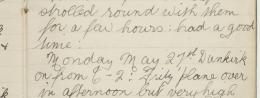 strolled round with them
for a few hours: had a good
time.
Monday May 27th Dunkirk
on from 6-2: Fritz plane over
in afternoon but very high